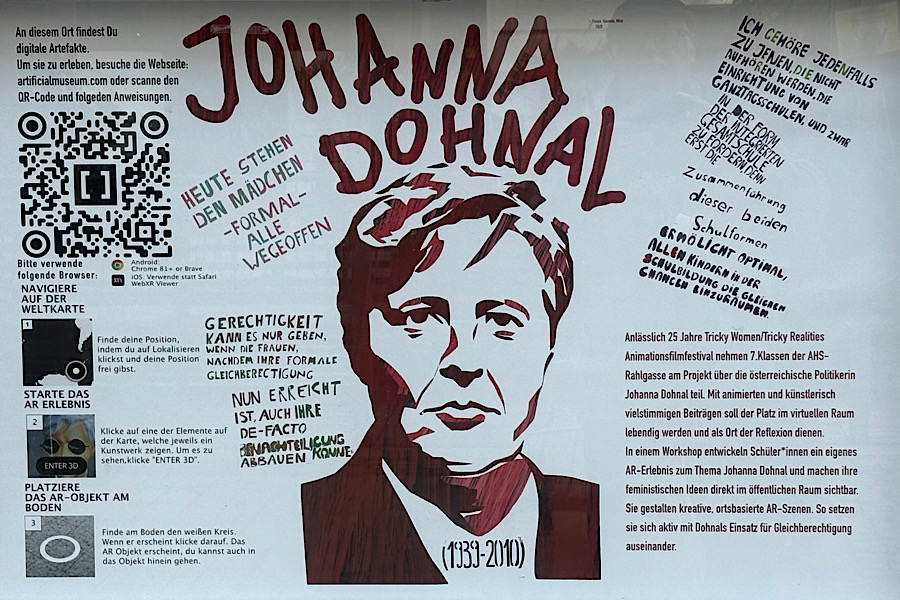 An diesem Ort findest Du
digitale Artefakte.
Um sie zu erleben, besuche die Webseite:
artificialmuseum.com oder scanne den
QR-Code und folgeden Anweisungen.
Bitte verwende
folgende Browser:
Android:
Chrome 81+ or Brave
iOS: Verwende statt Safari
WebXR Viewer
NAVIGIERE
AUF DER
WELTKARTE
1
Finde deine Position,
indem du auf Lokalisieren
klickst und deine Position
frei gibst.
STARTE DAS
AR ERLEBNIS
2
ENTER 3D
Klicke auf eine der Elemente auf
der Karte, welche jeweils ein
Kunstwerk zeigen. Um es zu
sehen,klicke "ENTER 3D".
PLATZIERE
DAS AR-OBJEKT AM
BODEN
3
Finde am Boden den weißen Kreis.
Wenn er erscheint klicke darauf. Das
AR Objekt erscheint, du kannst auch in
das Objekt hinein gehen.
JOHANNA
DOHNAL
HEUTE STEHEN
DEN MÄDCHEN
-FORMAL-
ALLE
WEGEOFFEN
GERECHTIGKEIT
KANN ES NUR GEBEN,
WENN DIE FRAUEN,
NACHDEM IHRE FORMALE
GLEICHBERECTIGUNG
NUN ERREICHT
IST, AUCH IHRE
DE-FACTO
BENACHTEILIGUNG
ABBAUEN KÖNNE.
(1939-2010)
ICH GEHÖRE JEDENFALLS
ZU JENEN, DIE NICHT
AUFHÖREN WERDEN, DIE
EINRICHTUNG VON
GANZTAGSSCHULEN, UND ZWAR
IN DER FORM
DER INTEGRIERTEN
GESAMTSCHULE
ZU FORDERN, DENN
ERST DIE
Zusammenführung
dieser beiden
Schulformen
ERMÖLICHT OPTIMAL,
ALLEN KINDERN IN DER
SCHULBILDUNG DIE GLEICHEN
CHANCEN EINZURÄUMEN.
Anlässlich 25 Jahre Tricky Women/Tricky Realities
Animationsfilmfestival nehmen 7.Klassen der AHS-
Rahlgasse am Projekt über die österreichische Politikerin
Johanna Dohnal teil. Mit animierten und künstlerisch
vielstimmigen Beiträgen soll der Platz im virtuellen Raum
lebendig werden und als Ort der Reflexion dienen.
In einem Workshop entwickeln Schüler*innen ein eigenes
AR-Erlebnis zum Thema Johanna Dohnal und machen ihre
feministischen Ideen direkt im öffentlichen Raum sichtbar.
Sie gestalten kreative, ortsbasierte AR-Szenen. So setzen
sie sich aktiv mit Dohnals Einsatz für Gleichberechtigung
auseinander.